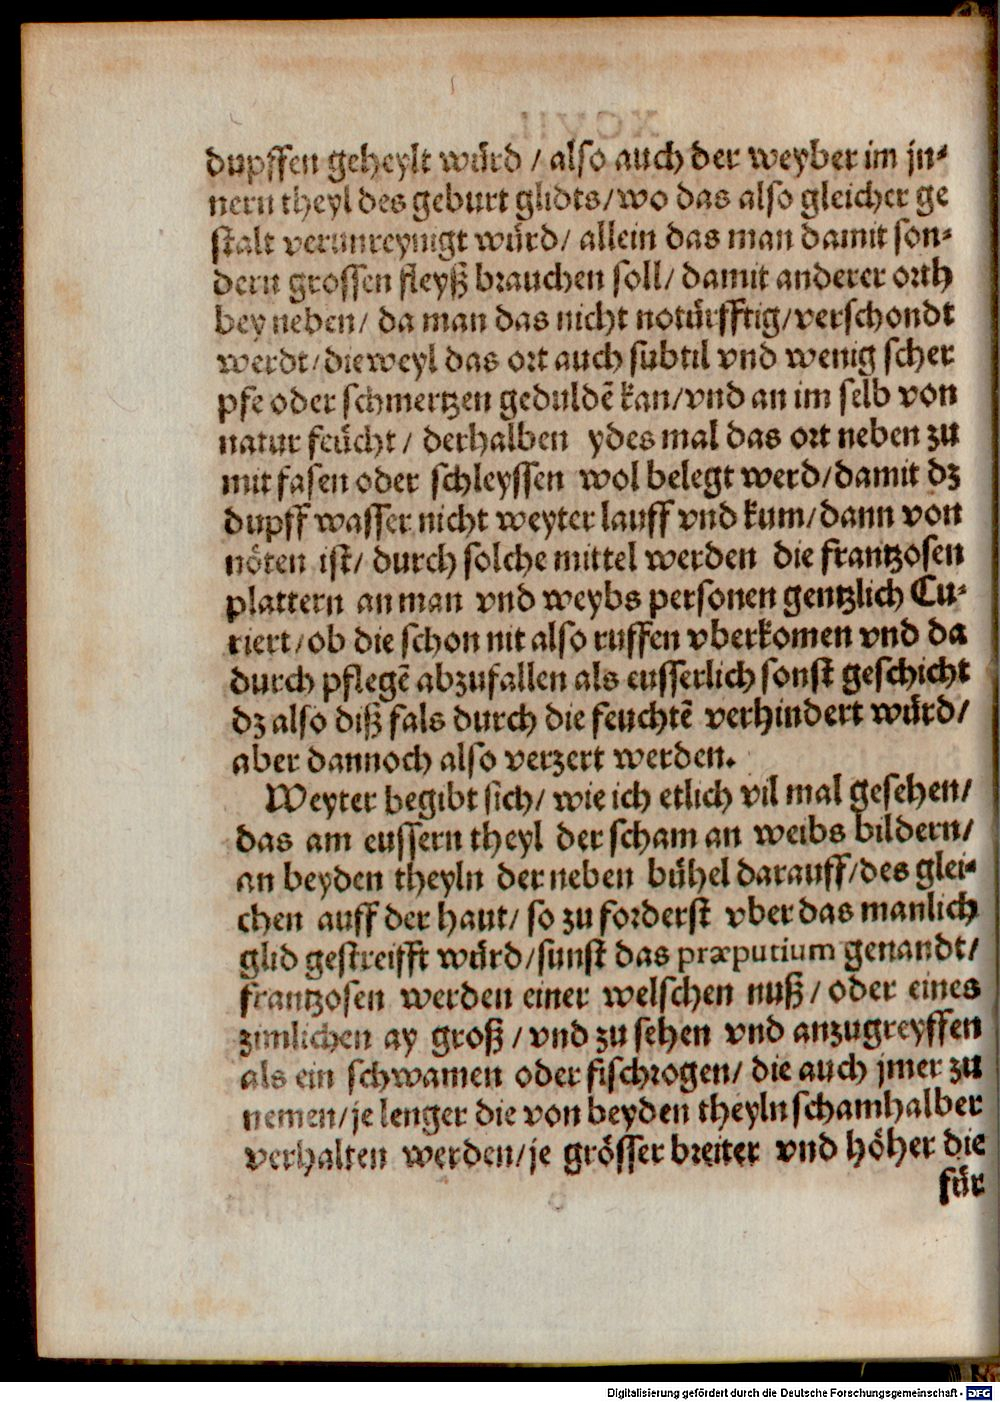 dupffen geheylt würd / also auch der weyber im jn⸗
nern theyl des geburt glidts/wo das also gleicher ge
stalt verunreynigt würd/ allein das man damit son⸗
dern grossen fleyß brauchen soll/ damit anderer orth
bey neben/ da man das nicht notürfftig/verschondt
werdt/dieweyl das ort auch subtil vnd wenig scher
pfe oder schmertzen geduldē kan/vnd an im selb von
natur feücht/ derhalben ydes mal das ort neben zu
mit fasen oder schleyssen wol belegt werd/damit dz
dupff wasser nicht weyter lauff vnd kum/dann von
nöten ist/ durch solche mittel werden die frantzosen
plattern an man vnd weybs personen gentzlich Cu⸗
riert/ob die schon nit also ruffen vberkomen vnd da
durch pflegē abzufallen als eusserlich sonst geschicht
dz also diß fals durch die feuchtē verhindert würd/
aber dannoch also verzert werden.
Weyter begibt sich/ wie ich etlich vil mal gesehen/
das am eussern theyl der scham an weibs bildern/
an beyden theyln der neben bühel darauff/des glei⸗
chen auff der haut/ so zu forderst vber das manlich
glid gestreifft würd/sunst das præputium genandt/
frantzosen werden einer welschen nuß/ oder eines
zimlichen ay groß / vnd zu sehen vnd anzugreyffen
als ein schwamen oder fischrogen/ die auch jmer zu
nemen/je lenger die von beyden theyln schamhalber
verhalten werden/je grösser breiter vnd höher die
für
Digitalisierung gefördert durch die Deutsche Forschungsgemeinschaft - DFG